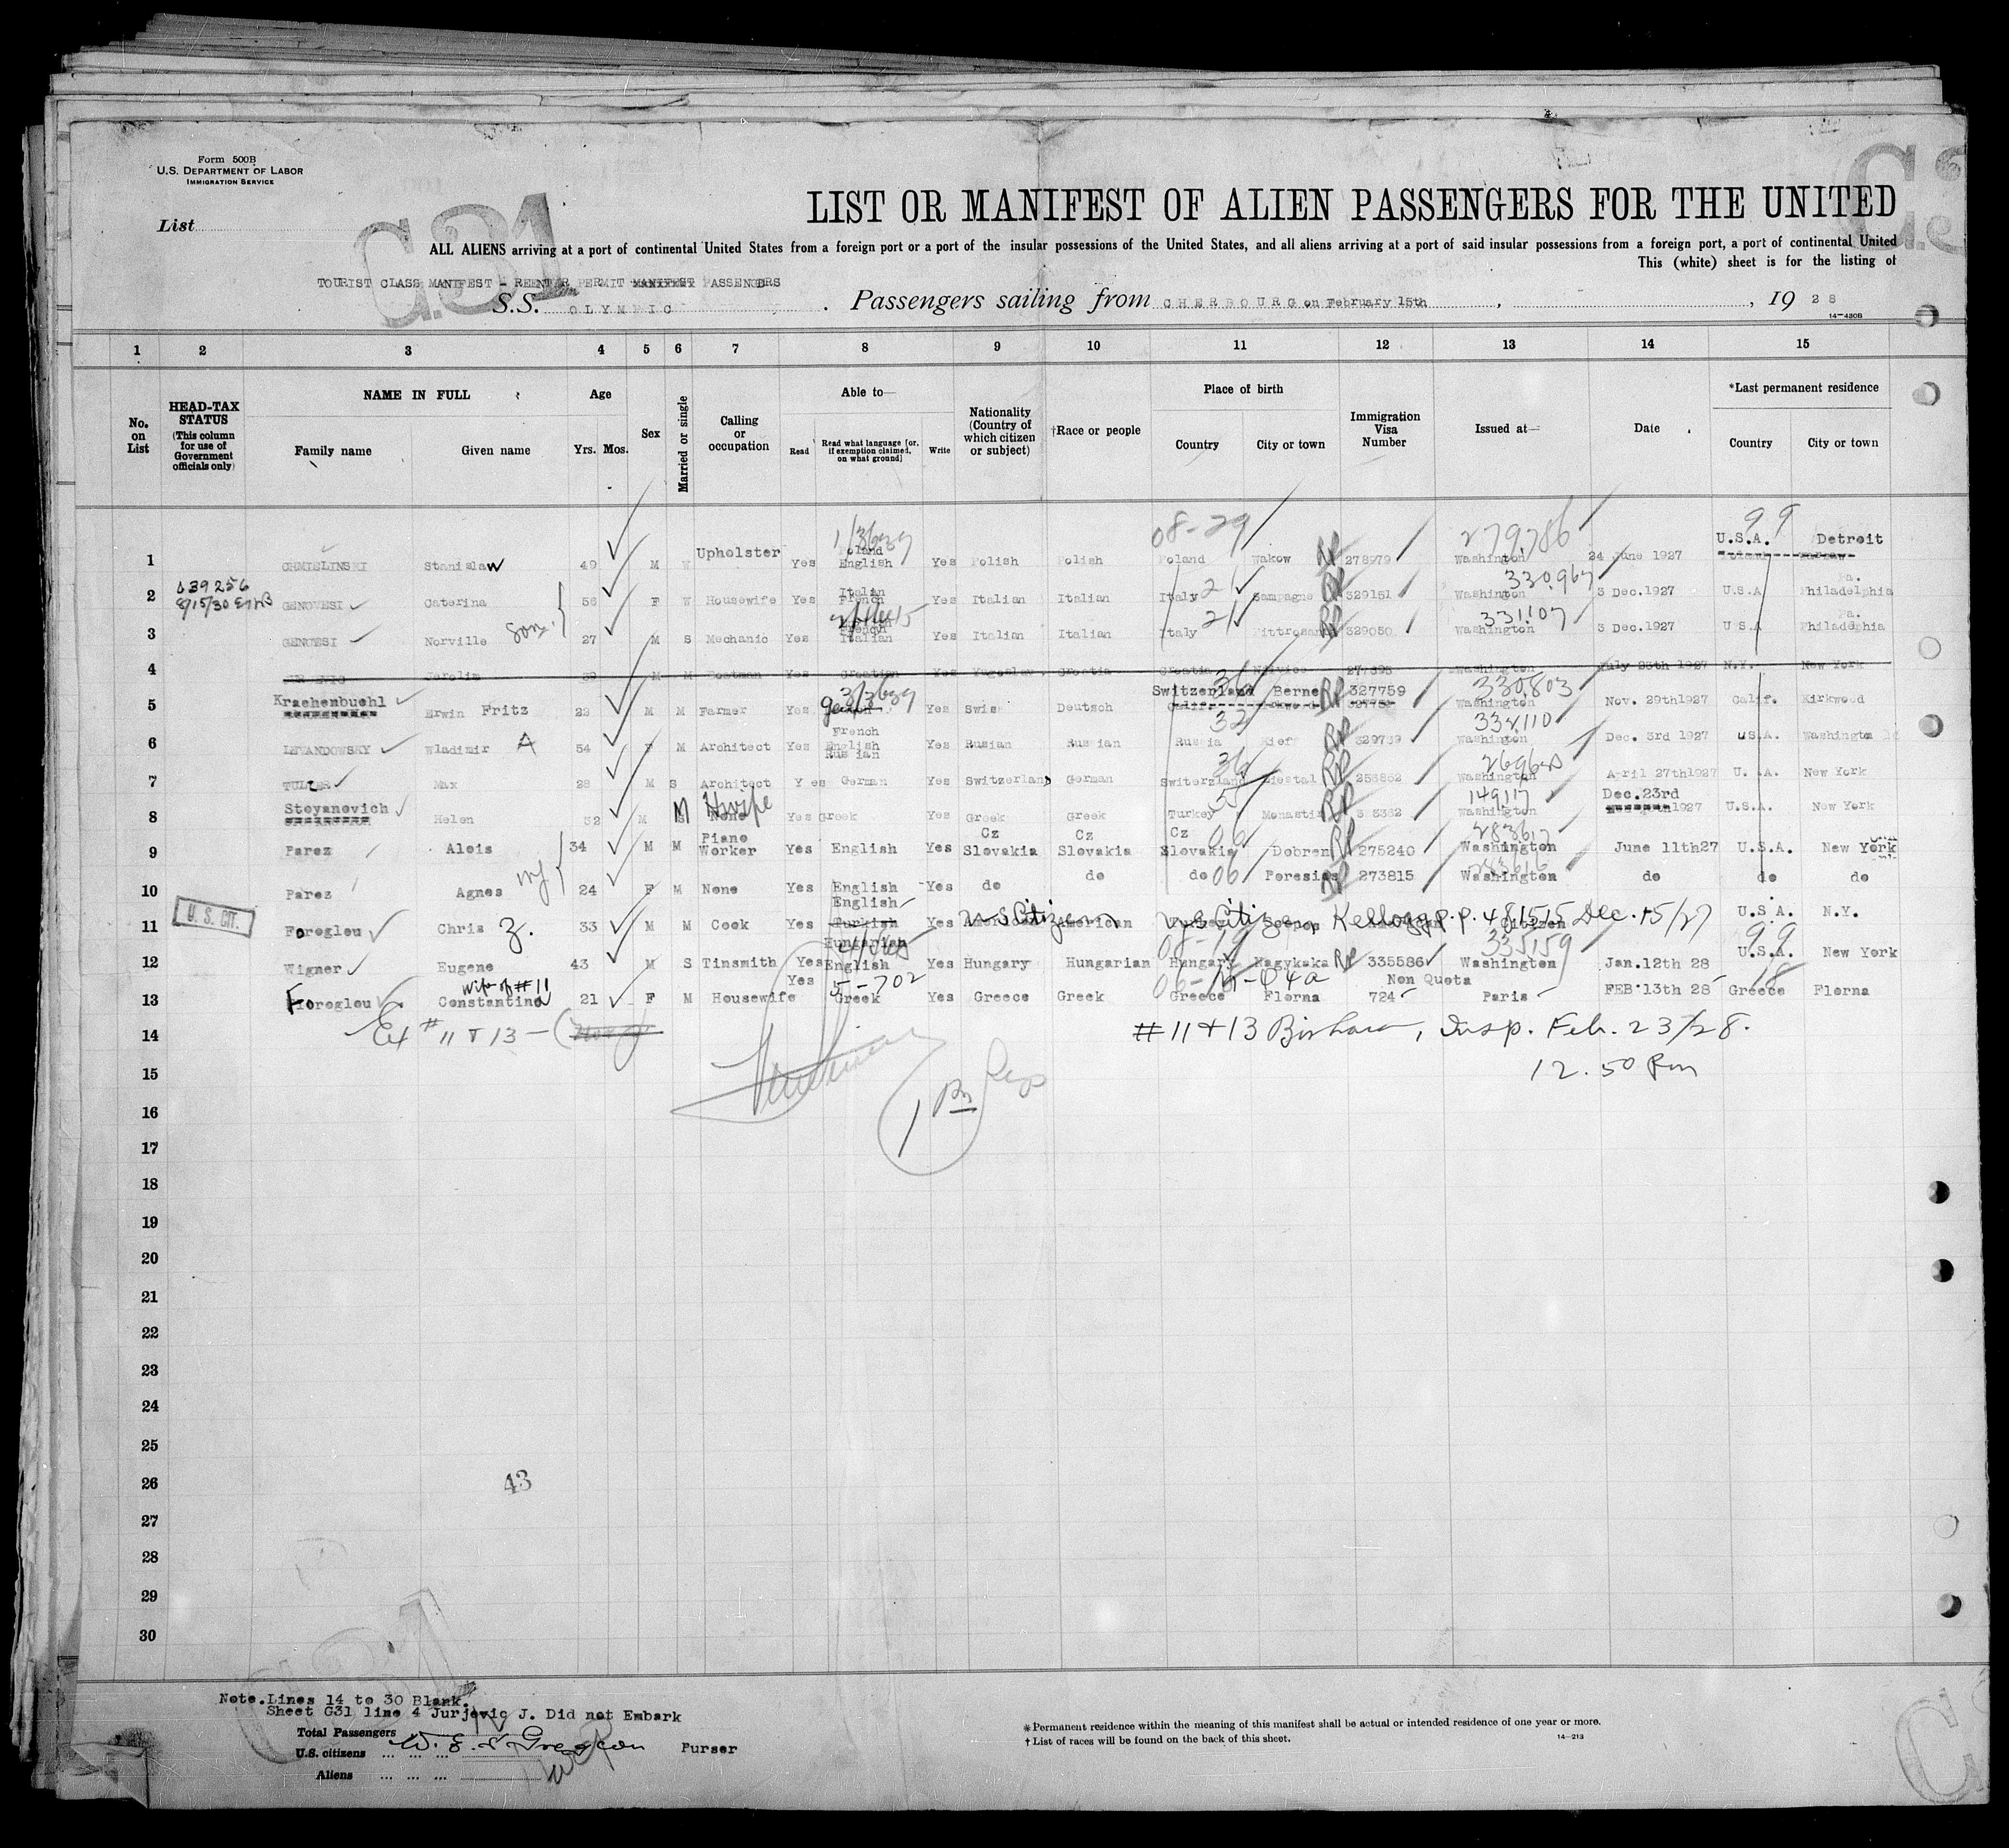 Form 500B
U.S. DEPARTMENT OF LABOR
IMMIGRATION SERVICE
List
G31
LIST OR MANIFEST OF ALIEN PASSENGERS FOR THE UNITED
ALL ALIENS arriving at a port of continental United States from a foreign port or a port of the insular possessions of the United States, and all aliens arriving at a port of said insular possessions from a foreign port, a port of continental United
This (white) sheet is for the listing of
TOURIST CLASS MANIFEST - REENTER PERMIT MANIFEST PASSENGERS
S.S. OLYMPIC. Passengers sailing from CHERBOURG on February 15th, , 19 28
14-430B
1 2 3 4 5 6 7 8 9 10 11 12 13 14 15
No. on List
HEAD-TAX STATUS (This column for use of Government officials only)
NAME IN FULL
Family name Given name
Age
Yrs. Mos.
Sex
Married or single
Calling or occupation
Able to—
Read Read what language [or, if exemption claimed, on what ground] Write
Nationality (Country of which citizen or subject)
†Race or people
Place of birth
Country City or town
Immigration Visa Number
Issued at—
Date
*Last permanent residence
Country City or town
08-29 279786 99
1 CHMIELINSKI Stanislaw 49 M W Upholster Yes Poland English Yes Polish Polish Poland Wakow RP 278979 Washington 24 June 1927 U.S.A. Detroit
639256 8/15/30
2 GENOVESI Caterina 56 F W Housewife Yes Italian French Yes Italian Italian Italy 21 Campagne RP 329151 330967 Washington 3 Dec.1927 U.S.A Pa. Philadelphia
3 GENOVESI Norville son 27 M S Mechanic Yes French Italian Yes Italian Italian Italy 21 RP 329050 331107 Washington 3 Dec.1927 U S A Pa. Philadelphia
4 Jerolim 39 M M Yes Croatian Yes Yugoslav Croatia Croatia 277395 Washington July 25th 1927 N.Y. New York
5 Kraehenbuehl Erwin Fritz 23 M M Farmer Yes German Yes Swiss Deutsch Switzerland 36 Berne RP 327759 330,803 Washington Nov. 29th1927 Calif. Kirkwood
6 LEWANDOWSKY Wladimir A 54 F M Architect Yes French English Russian Yes Rusian Russian Russia 32 Kief RP 329739 334110 Washington Dec. 3rd 1927 U.S.A. Washington
7 TULLER Max 28 M S Architect Yes German Yes Switzerland German Switerzland 36 Liestal RP 258852 Washington April 27th1927 U. .A. New York
8 Stoyanovich Helen 32 M M Hwife None Yes Greek Yes Greek Greek Turkey Monastir RP 149117 Washington Dec.23rd 1927 U.S.A. New York
9 Parez Alois 34 M M Piano Worker Yes English Yes Cz Slovakia Cz Slovakia Cz Slovakia 06 Dobren RP 275240 28361 Washington June 11th27 U.S.A. New York
10 Parez Agnes wf 24 F M None Yes English Yes do do do 06 RP 273815 283616 Washington do do do
U. S. CIT.
11 Foroglou Chris Z. 33 M M Cook Yes English Turkish Yes U S Citizen American U S Citizen Kellogg p.p. 481515 Dec. 15/27 U.S.A. N.Y.
12 Wigner Eugene 43 M S Tinsmith Yes Hungarian English Yes Hungary Hungarian Hungary 08-19 Nagykaka RP 335586 335159 Washington Jan.12th 28 99 U.S.A. New York
wife of #11
13 Foroglou Constantina 21 F M Housewife Yes 5-702 Greek Yes Greece Greek Greece Florna Non Quota 724 Paris FEB.13th 28 Greece Florna
14 Ex # 11 & 13 – #11 + 13 Insp. Feb. 23/28.
15 12.50 Pm
16
17
18
19
20
21
22
23
24
25
26 43
27
28
29
30
Note.Lines 14 to 30 Blank.
Sheet G31 line 4 Jurjevic J. Did not Embark
Total Passengers
U.S. citizens ... ... ... Purser
Aliens ... ... ...
* Permanent residence within the meaning of this manifest shall be actual or intended residence of one year or more.
† List of races will be found on the back of this sheet.
14-213